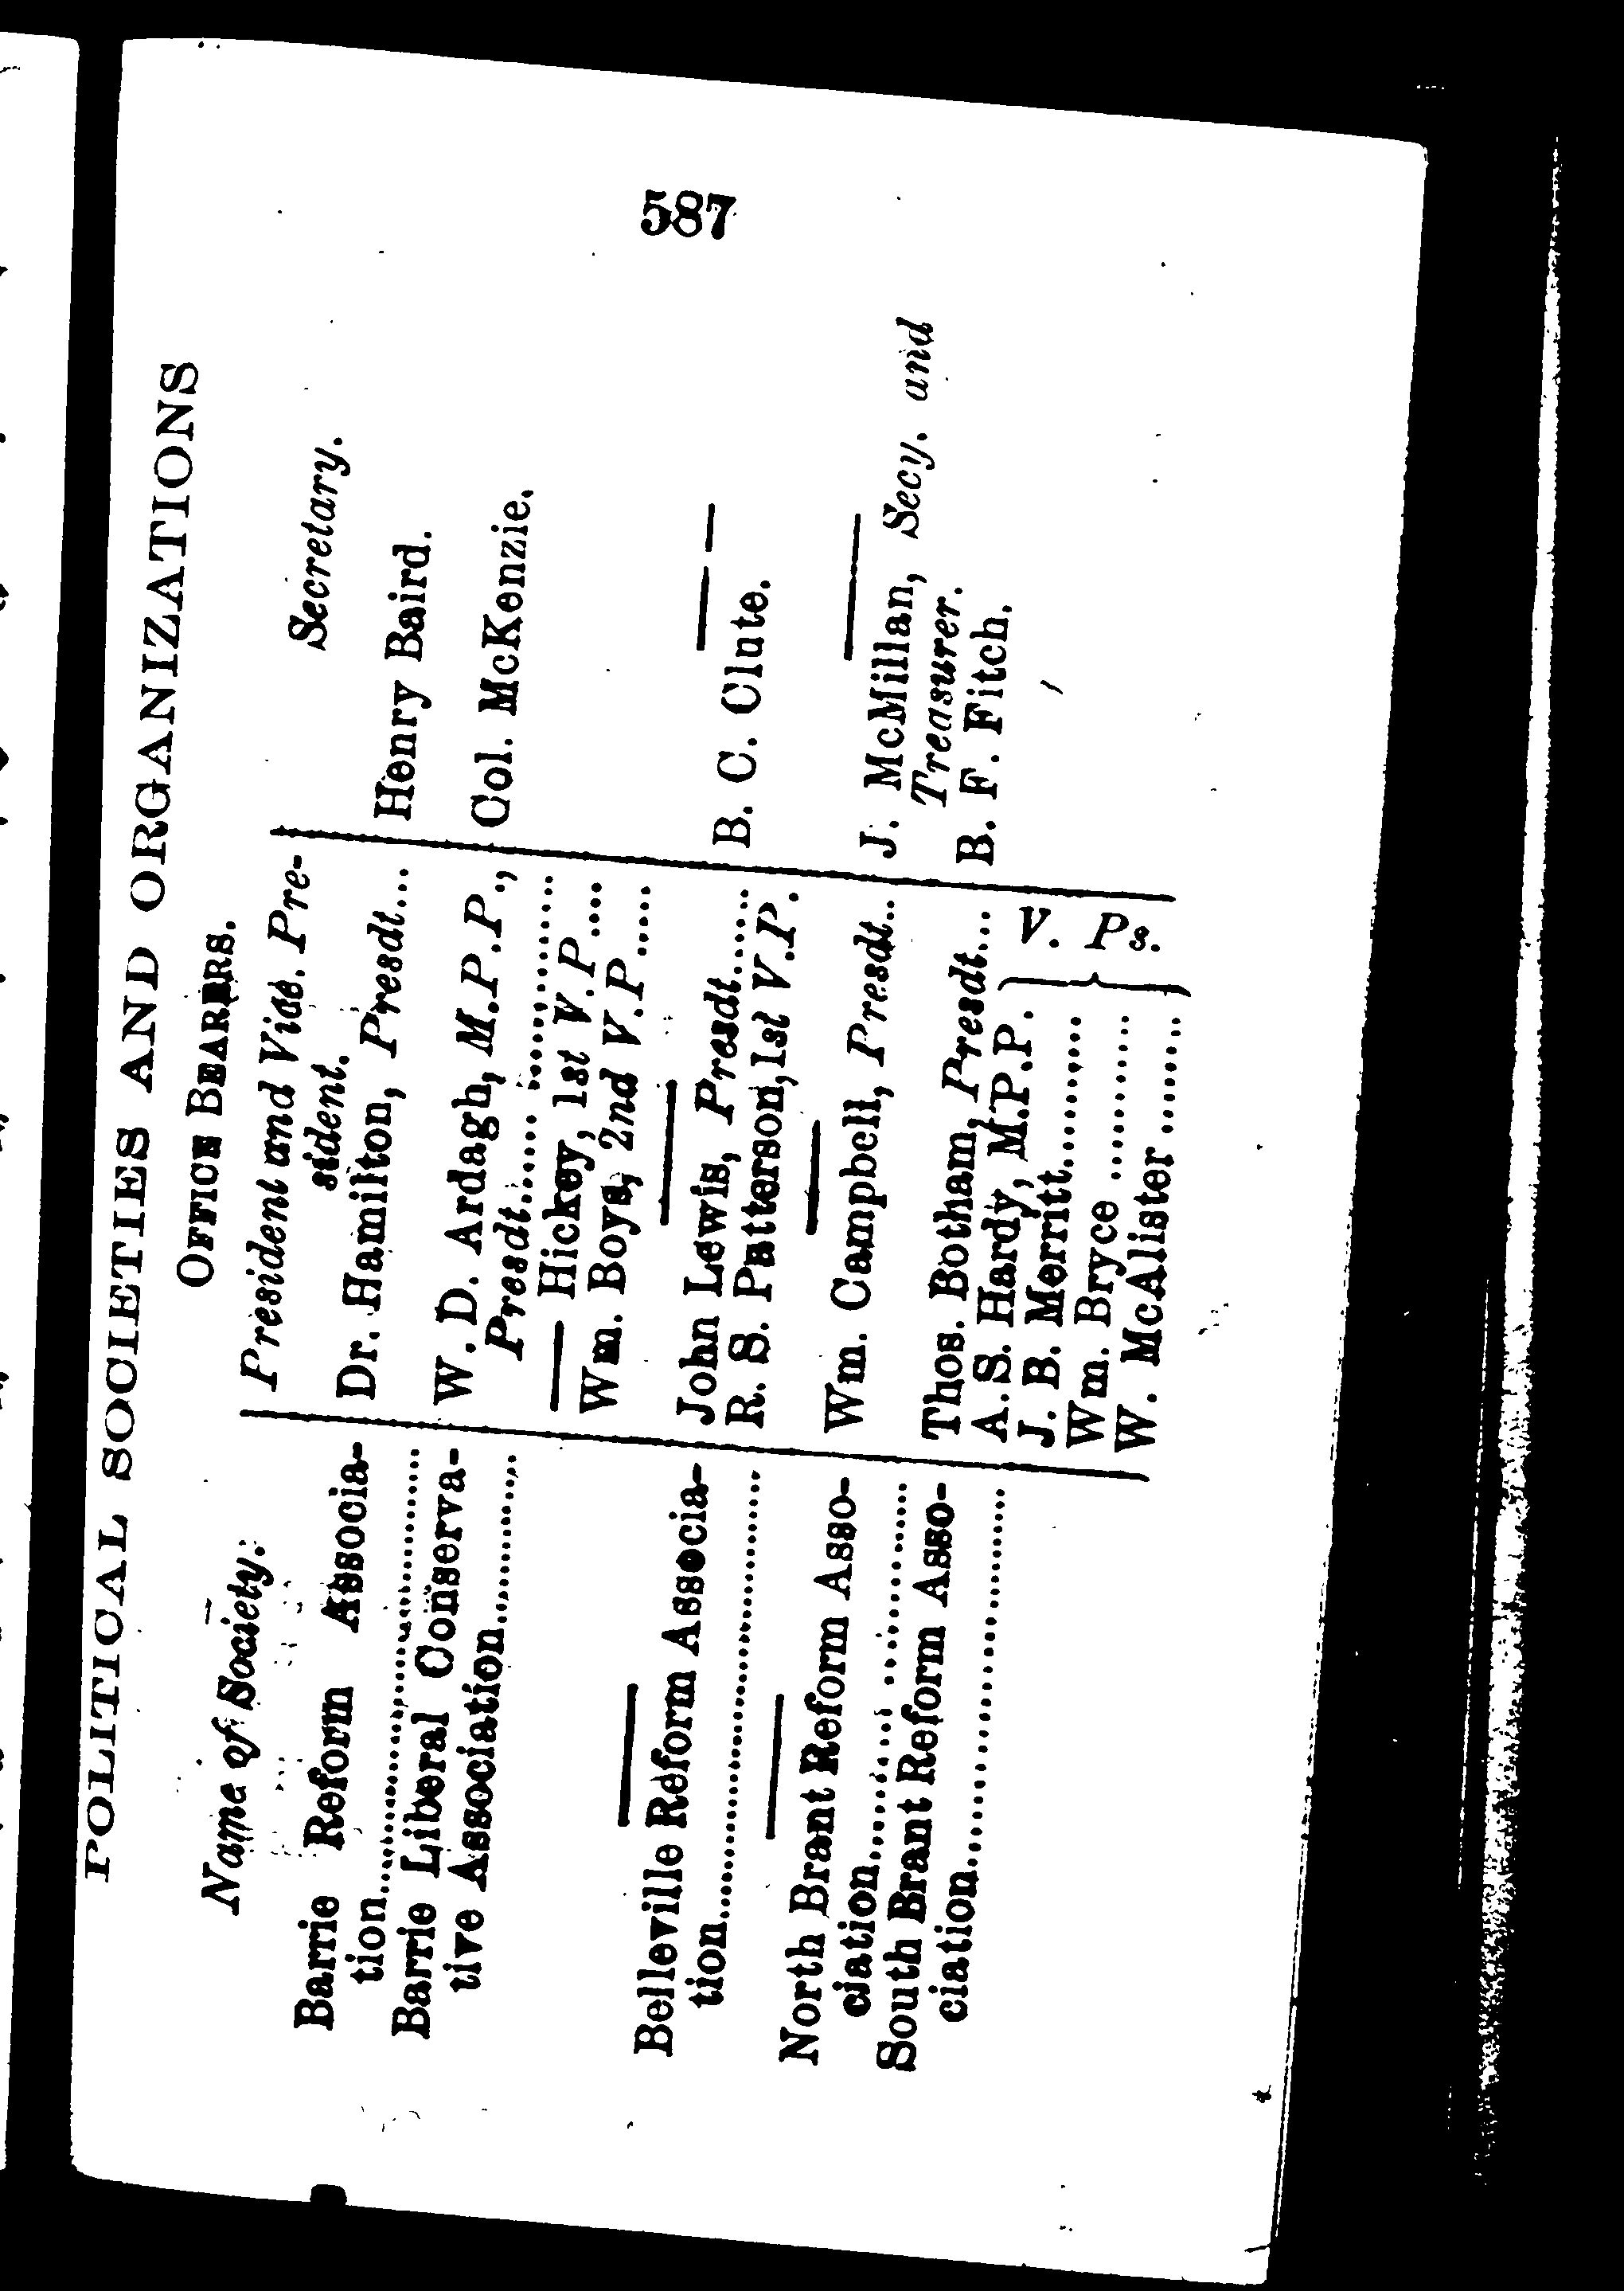 587
POLITICAL SOCIETIES AND ORGANIZATIONS
OFFICE BEARERS.
Name of Society.
President and Vice. Pre-
sident.
Secretary.
Barrie Reform Associa-
tion..............................
Dr. Hamilton, Presdt...
Henry Baird.
Barrie Liberal Conserva-
tive Association............
W. D. Ardagh, M.P.P.,
Presdt...... ..............
Col. McKenzie.
— Hickey, 1st V.P.....
Wm. Boys, 2nd V.P......
Belleville Reform Associa-
tion..............................
John Lewis, Presdt......
R. S. Patterson, 1st V.P.
B. C. Clute.
North Brant Reform Asso-
ciation......... ............
Wm. Campbell, Presdt..
J. McMillan, Secy. and
Treasurer.
South Brant Reform Asso-
ciation..........................
Thos. Botham, Presdt...
B. F. Fitch.
A.S. Hardy, M.P.P.
J. B. Merritt..........
Wm. Bryce ..........
W. McAlister ........
} V. Ps.